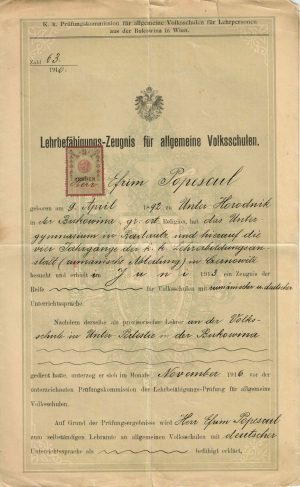 K. k. Prüfungskommission für allgemeine Volksschulen für Lehrpersonen
aus der Bukowina in Wien.
Zahl 63.
1916.
Lehrbefähigungs-Zeugnis für allgemeine Volksschulen.
Herr Efrim Popescul
geboren am 9. April 1892 zu Unter Horodnik
in der Bukowina, gr. or. Religion, hat das Unter
gymnasium in Radautz und hierauf die
vier Jahrgänge der k. k. Lehrerbildungsan
stalt (rumänische Abteilung) in Czernowitz
besucht und erhielt im Juni 1913 ein Zeugnis der
Reife für Volksschulen mit rumänischer u. deutscher
Unterrichtssprache.
Nachdem derselbe als provisorischer Lehrer an der Volks-
schule in Unter Pertestie in der Bukowina
gedient hatte, unterzog er sich im Monate November 1916 vor der
unterzeichneten Prüfungskommission der Lehrbefähigungs-Prüfung für allgemeine
Volksschulen.
Auf Grund der Prüfungsergebnisse wird Herr Efrim Popescul
zum selbständigen Lehramte an allgemeinen Volksschulen mit deutscher
Unterrichtssprache als befähigt erklärt.